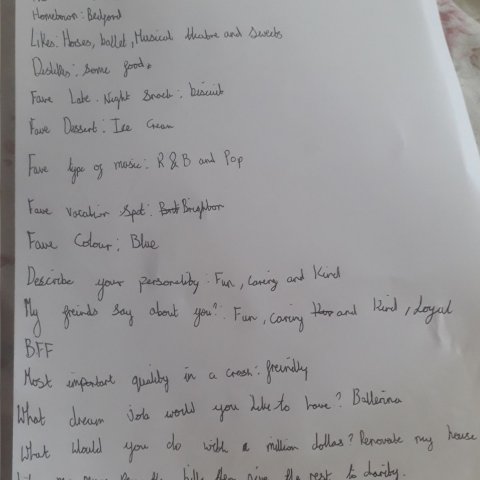 Hometown: Bedford
Likes: Horses, ballet, Musical theatre and sweets
Dislikes: some food.
Fave Late-Night Snack: biscuit
Fave Dessert: Ice Cream
Fave type of music: R & B and Pop
Fave vacation spot: Brighton
Fave Colour: Blue
Describe your personality: Fun, caring and Kind
My freinds say about you?: Fun, caring and Kind, Loyal
BFF
Most important quality in a crush: freindly
What dream Job would you like to have? Ballerina
What would you do with a million dollas? Renovate my house
the bills then give the rest to charity.